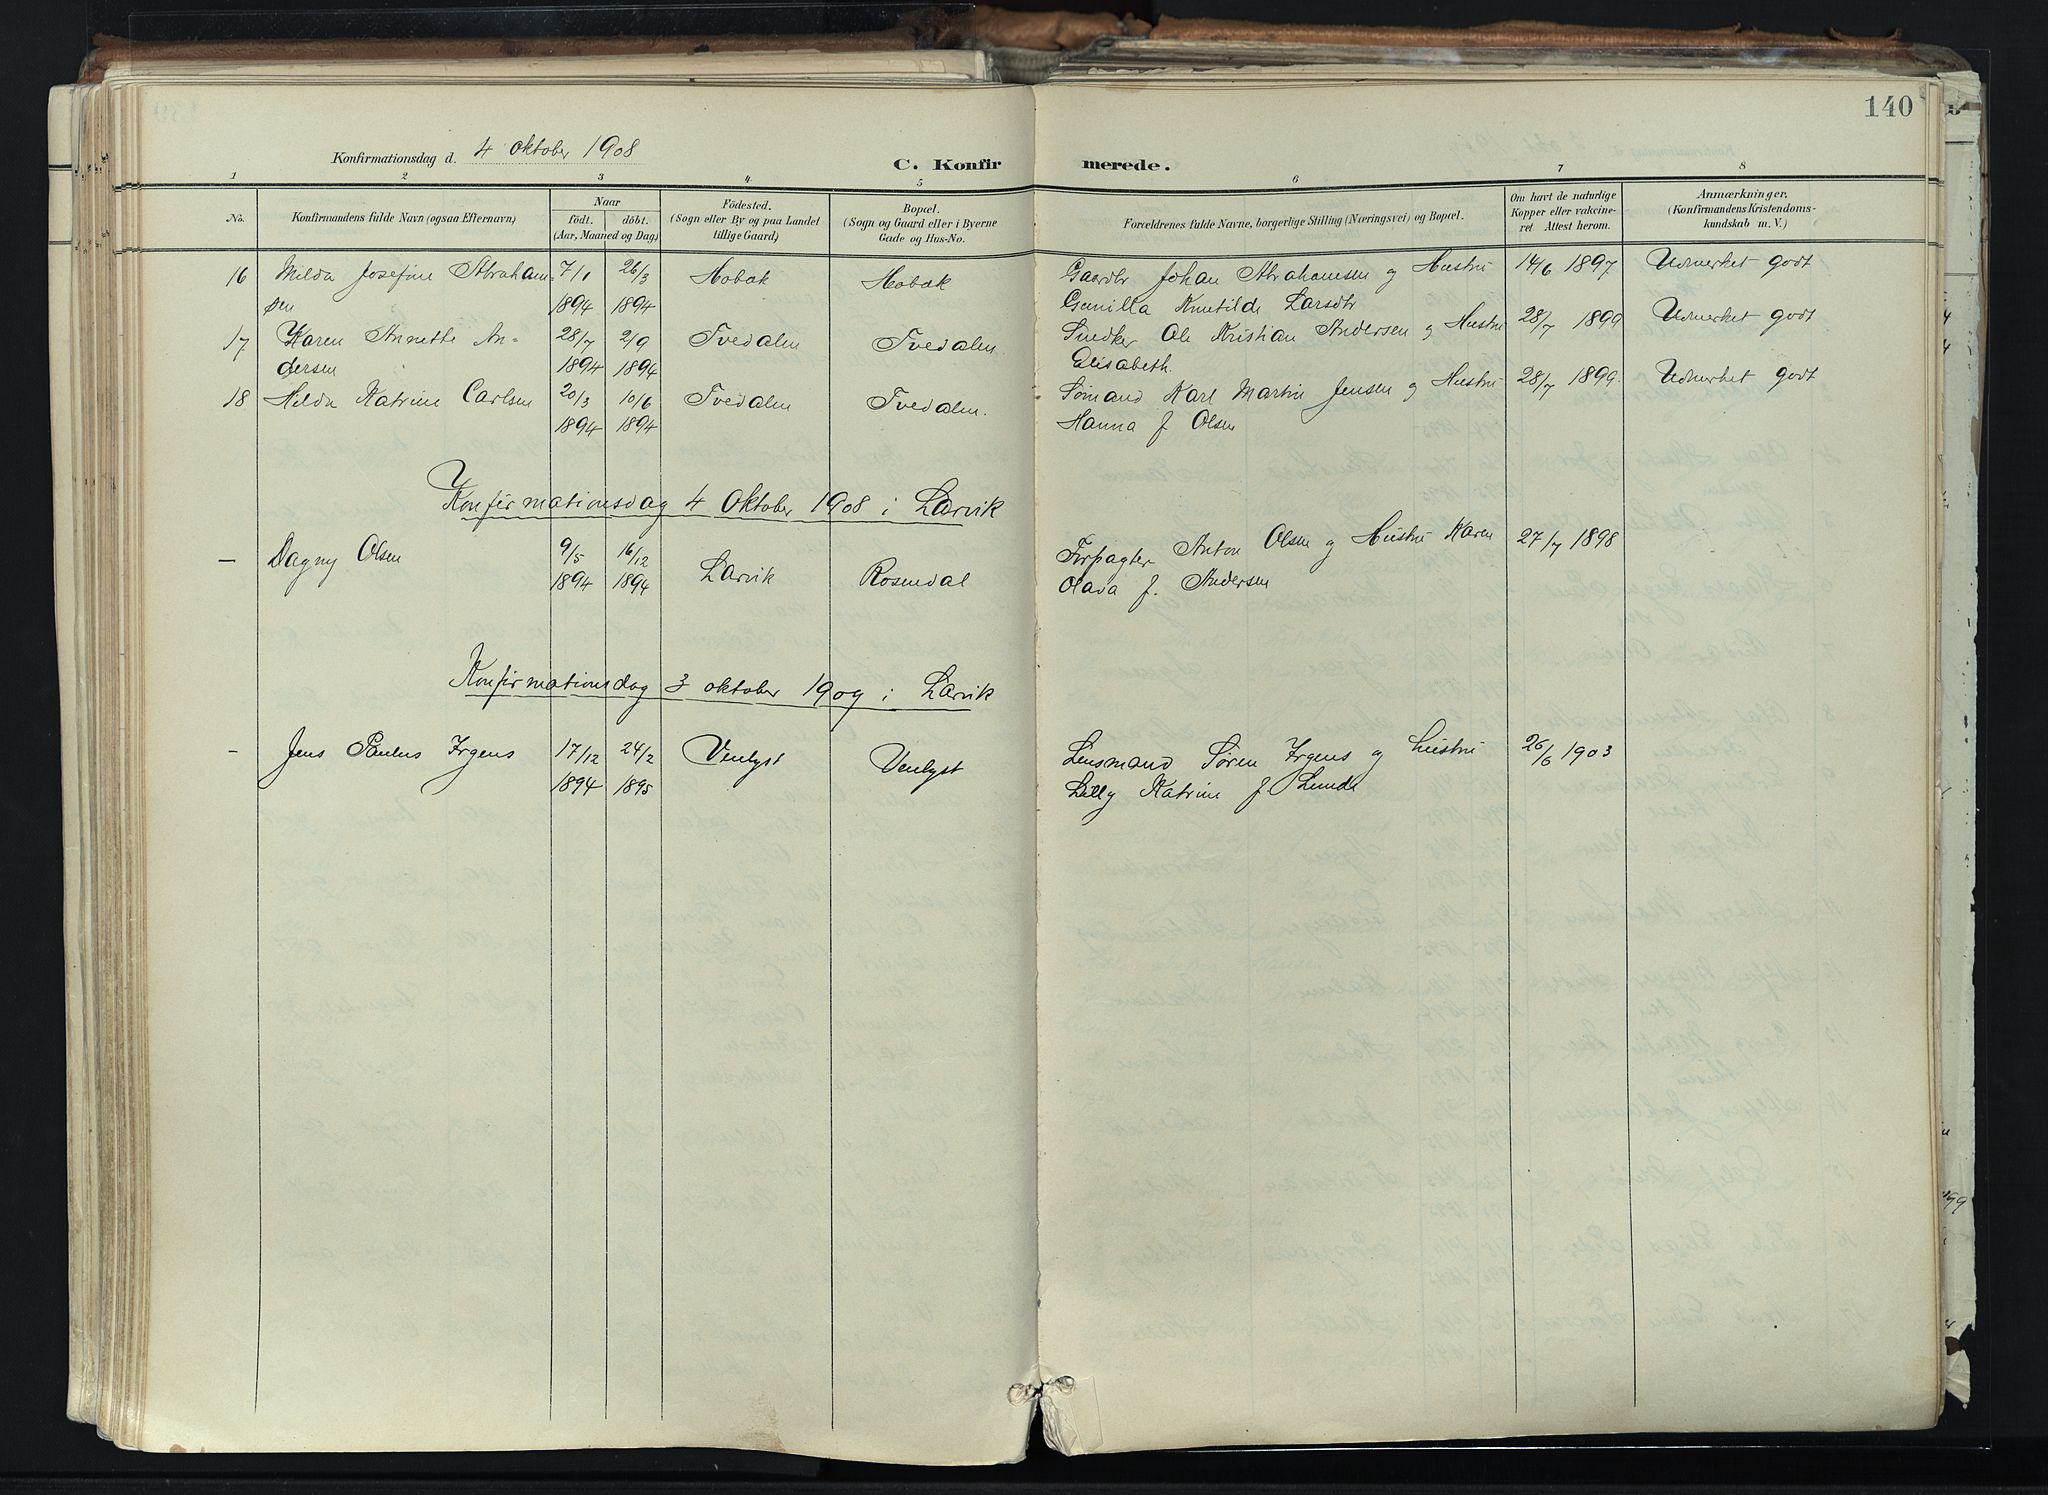 140
Konfirmationsdag d. 4 Oktober 1908
C. Konfirmerede.
1 2 3 4 5 6 7 8
No. Konfirmandens fulde Navn (ogsaa Efternavn)
Naar
födt. döbt.
(Aar, Maaned og Dag)
Födested.
(Sogn eller By og paa Landet
tillige Gaard)
Bopæl.
(Sogn og Gaard eller i Byerne
Gade og Hus-No.
Forældrenes fulde Navne, borgerlige Stilling (Næringsvei) og Bopæl.
Om havt de naturlige
Kopper eller vakcine-
ret Attest herom.
Anmærkninger,
(Konfirmandens Kristendoms-
kundskab m. V.)
16 Milda Josefine Abraham= 7/1 26/3 Hobæk Hobæk Gaardbr Johan Abrahamsen og Hustru 14/6 1897 Udmerket godt
sen 1894 1894 Gunilla Knutilde Larsdtr
17 Karen Annette An= 28/7 2/9 Tvedalen Tvedalen Snedker Ole Kristian Andersen og Hustru 28/7 1899 Udmerket godt
dersen 1894 1894 Elisabeth.
18 Hilda Katrine Carlsen 20/3 10/6 Tvedalen Tvedalen. Sømand Karl Martin Jensen og Hustru 28/7 1899. Udmerket godt
1894 1894 Hanna f Olsen
Konfirmationsdag 4 Oktober 1908 i Larvik
— Dagny Olsen 9/5 16/12 Larvik Rosendal Forpagter Anton Olsen og Hustru Karen 27/7 1898
1894 1894 Olava f. Andersen
Konfirmationsdag 3 oktober 1909 i Larvik
- Jens Paulus Irgens 17/12 24/2 Venlyst Venlyst Lensmand Søren Irgens og hustru 26/6 1903
1894 1895 Lilly Katrine f Lunde